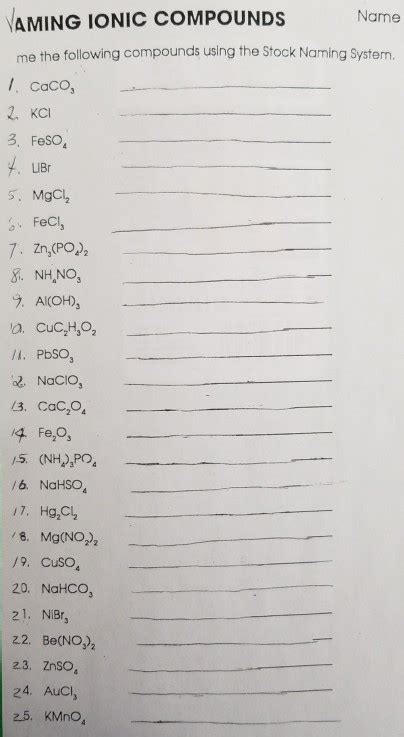 NAMING IONIC COMPOUNDS Name
me the following compounds using the Stock Naming System.
1. CaCO₃
2. KCl
3. FeSO₄
4. LiBr
5. MgCl₂
6. FeCl₃
7. Zn₃(PO₄)₂
8. NH₄NO₃
9. Al(OH)₃
10. CuC₂H₃O₂
11. PbSO₃
12. NaClO₃
13. CaC₂O₄
14. Fe₂O₃
15. (NH₄)₃PO₄
16. NaHSO₄
17. Hg₂Cl₂
18. Mg(NO₂)₂
19. CuSO₄
20. NaHCO₃
21. NiBr₃
22. Be(NO₃)₂
23. ZnSO₄
24. AuCl₃
25. KMnO₄